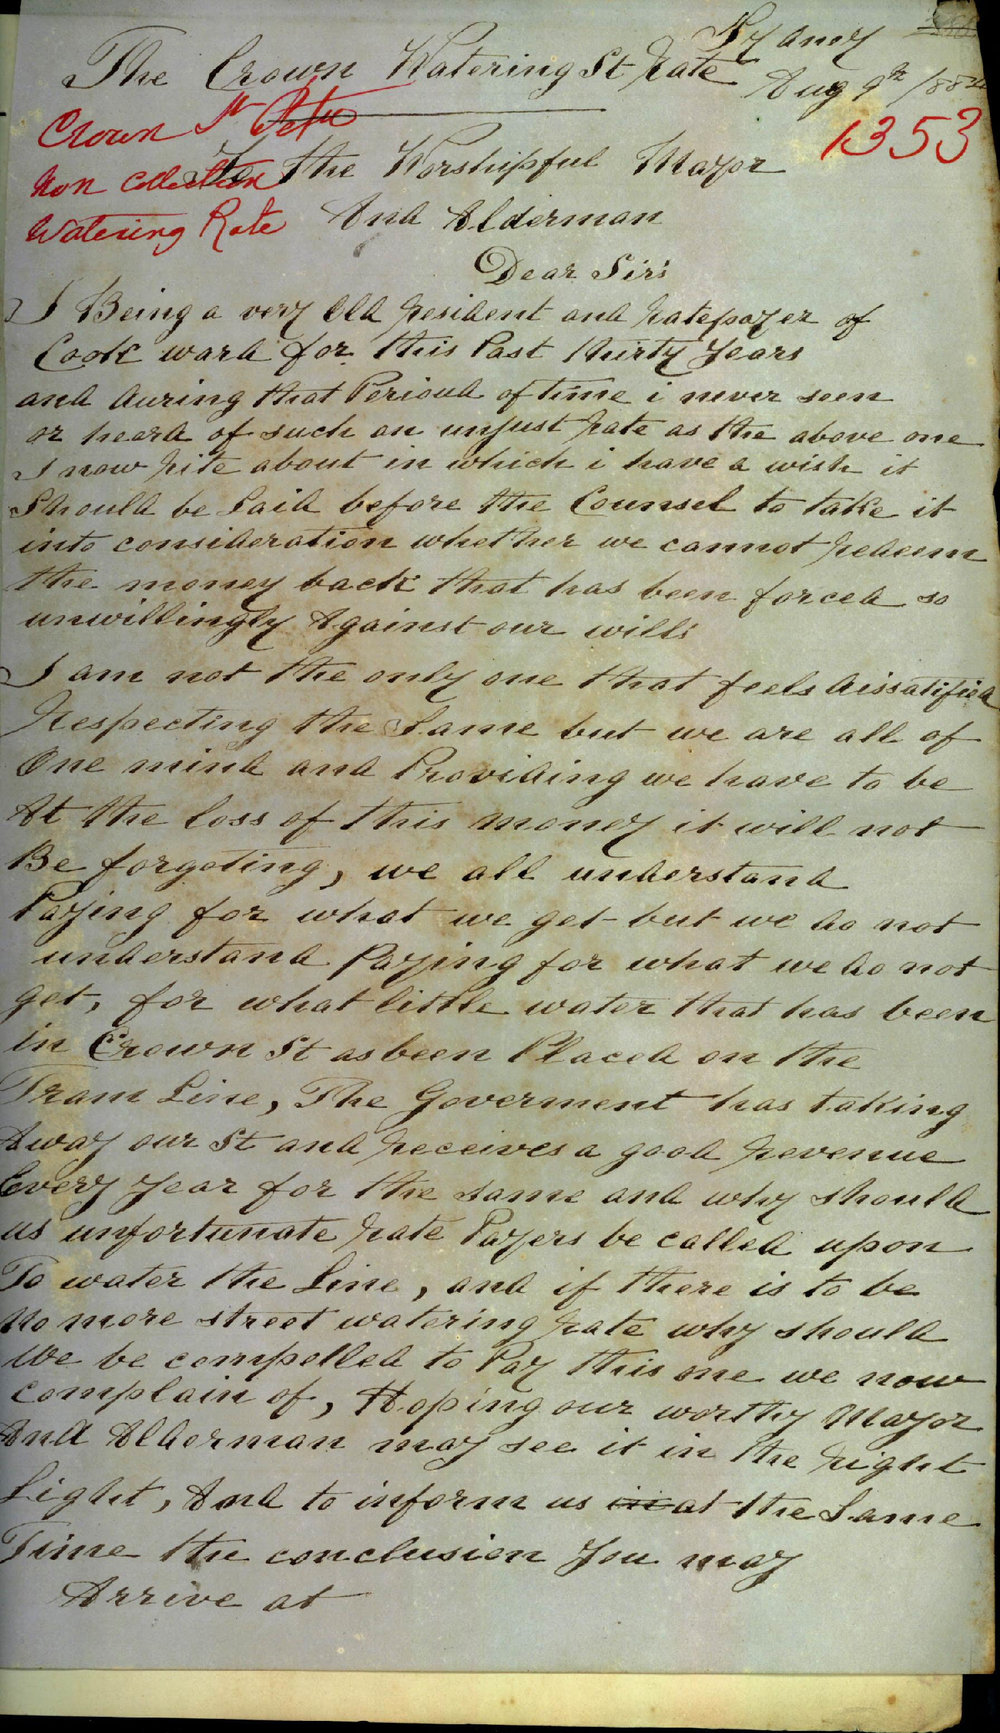 Sydney
The Crown Watering St Rate
Aug 9th /882
1353
Crown St
Non Collection
Watering Rate
To the Worshipful Mayor
And Alderman
Dear Sirs
I Being a very Old Resident and Ratepayer of
Cook ward for this Past thirty Years
and during that Perioud of time i never seen
or heard of such an unjust Rate as the above one
I now Rite about in which i have a wish it
Should be Laid before the Counsel to take it
into consideration whether we cannot Redeem
the money back that has been forced so
unwillingly Against our wills
I am not the only one that feels dissatified
Respecting the Same but we are all of
One mind and Providing we have to be
At the loss of this money it will not
Be forgoting, we all understand
Paying for what we get but we do not
understand Paying for what we do not
get, for what little water that has been
in Crown St as been Placed on the
Tram Line, The Goverment has taking
Away our St and Receives a good Revenue
Every Year for the same and why should
us unfortunate Rate Payers be called upon
To water the Line, and if there is to be
No more street watering Rate why should
We be compelled to Pay this one we now
complain of, Hoping our worthy Mayor
And Alderman may see it in the Right
Light, And to inform us at the Same
Time the conclusion You may
Arrive at